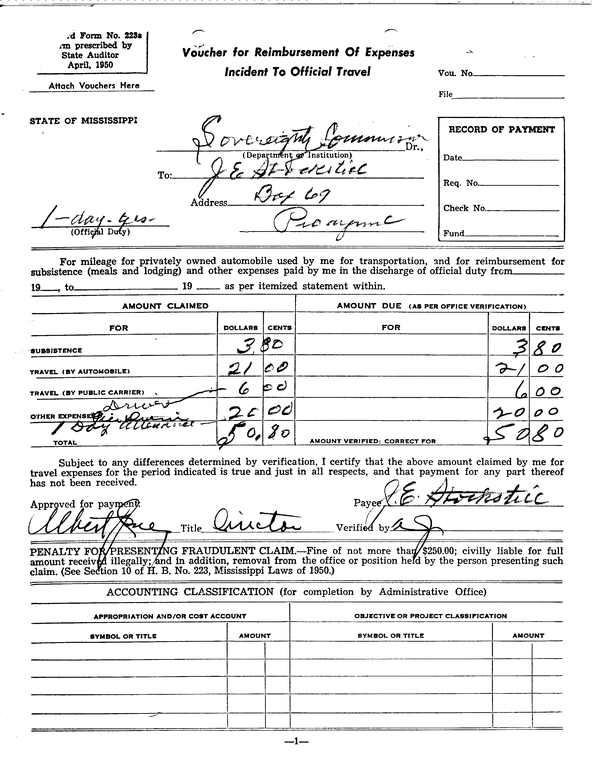 d Form No. 223a
m prescribed by
State Auditor
April, 1950
Attach Vouchers Here
Voucher for Reimbursement Of Expenses
Incident To Official Travel
Vou. No.
File
STATE OF MISSISSIPPI
Sovereignty Commission Dr.,
(Department or Institution)
To: J E Stockstill
Address Box 69
Picayune
1-day-
(Official Duty)
RECORD OF PAYMENT
Date
Req. No.
Check No.
Fund
For mileage for privately owned automobile used by me for transportation, and for reimbursement for
subsistence (meals and lodging) and other expenses paid by me in the discharge of official duty from
19 , to 19 as per itemized statement within.
AMOUNT CLAIMED AMOUNT DUE (AS PER OFFICE VERIFICATION)
FOR DOLLARS CENTS FOR DOLLARS CENTS
SUBSISTENCE 3 80 3 80
TRAVEL (BY AUTOMOBILE) 21 00 21 00
TRAVEL (BY PUBLIC CARRIER) 6 00 6 00
Driver
OTHER EXPENSES 20 00 20 00
1 Day Attendance
TOTAL 50.80 AMOUNT VERIFIED: CORRECT FOR 50 80
Subject to any differences determined by verification, I certify that the above amount claimed by me for
travel expenses for the period indicated is true and just in all respects, and that payment for any part thereof
has not been received.
Approved for payment: Payee J. E. Stockstill
Albert Title Director Verified by
PENALTY FOR PRESENTING FRAUDULENT CLAIM.—Fine of not more than $250.00; civilly liable for full
amount received illegally; and in addition, removal from the office or position held by the person presenting such
claim. (See Section 10 of H. B. No. 223, Mississippi Laws of 1950.)
ACCOUNTING CLASSIFICATION (for completion by Administrative Office)
APPROPRIATION AND/OR COST ACCOUNT OBJECTIVE OR PROJECT CLASSIFICATION
SYMBOL OR TITLE AMOUNT SYMBOL OR TITLE AMOUNT
—1—